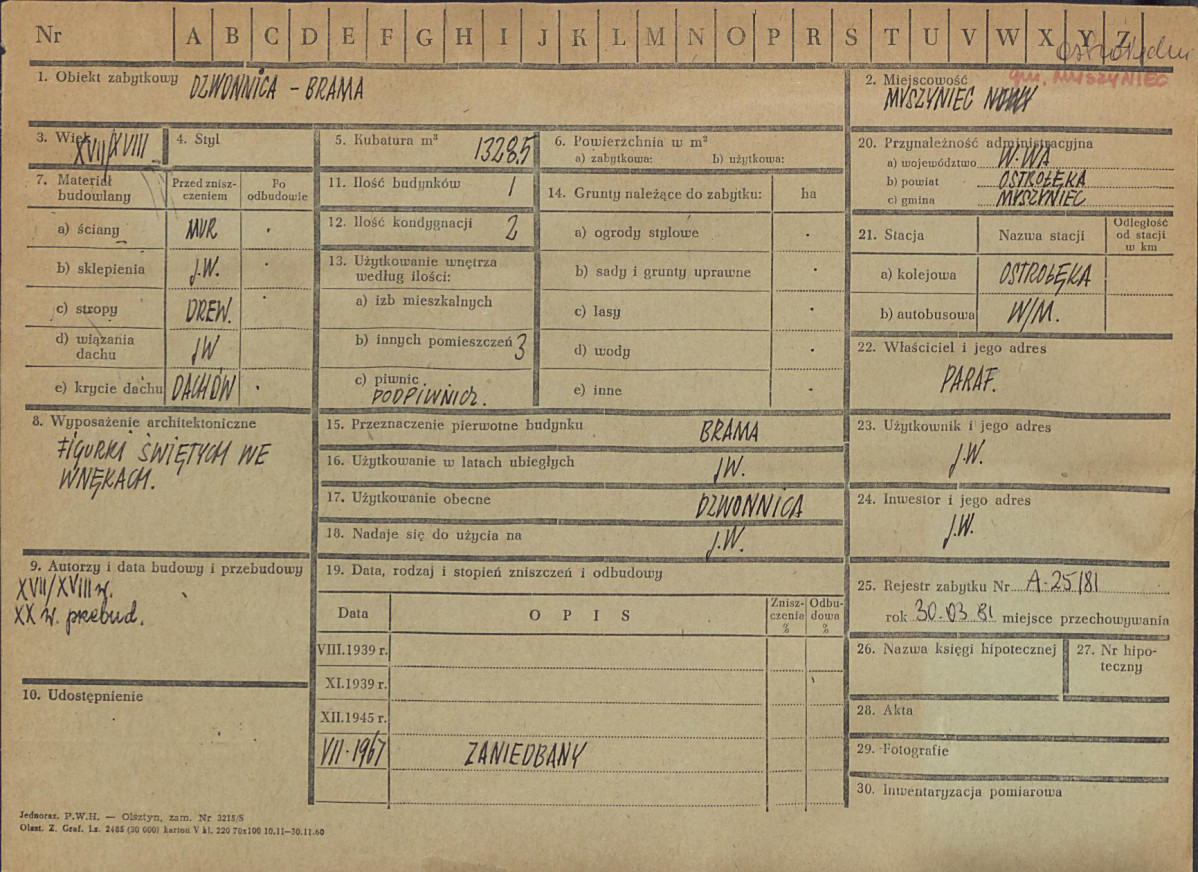 Nr A B C D E F G H I J K L M N O P R S T U V W X Y Z
gm. MYSZYNIEC
1. Obiekt zabytkowy DZWONNICA - BRAMA
2. Miejscowość
MYSZYNIEC NOWY
3. Wiek XVII/XVIII
4. Styl
5. Kubatura m³ 1328.5
6. Powierzchnia w m²
a) zabytkowa: b) użytkowa:
7. Materiał budowlany
Przed zniszczeniem
Po odbudowie
a) ściany MUR
b) sklepienia J.W.
c) stropy DREW.
d) wiązania dachu JW
e) krycie dachu DACHÓW
8. Wyposażenie architektoniczne
FIGURKI ŚWIĘTYCH WE
WNĘKACH.
9. Autorzy i data budowy i przebudowy
XVII/XVIII w.
XX w. przebud.
10. Udostępnienie
11. Ilość budynków 1
12. Ilość kondygnacji 2
13. Użytkowanie wnętrza
według ilości:
a) izb mieszkalnych
b) innych pomieszczeń 3
c) piwnic
PODPIWNICZ.
14. Grunty należące do zabytku: ha
a) ogrody stylowe
b) sady i grunty uprawne
c) lasy
d) wody
e) inne
15. Przeznaczenie pierwotne budynku BRAMA
16. Użytkowanie w latach ubiegłych JW.
17. Użytkowanie obecne DZWONNICA
18. Nadaje się do użycia na J.W.
19. Data, rodzaj i stopień zniszczeń i odbudowy
Data O P I S Zniszczenia % Odbudowa %
VIII.1939 r.
XI.1939 r.
XII.1945 r.
VII-1967 ZANIEDBANY
20. Przynależność administracyjna
a) województwo W-WA
b) powiat OSTROŁĘKA
c) gmina MYSZYNIEC
21. Stacja Nazwa stacji Odległość od stacji w km
a) kolejowa OSTROŁĘKA
b) autobusowa W/M.
22. Właściciel i jego adres
PARAF.
23. Użytkownik i jego adres
J.W.
24. Inwestor i jego adres
J.W.
25. Rejestr zabytku Nr A-25/81
rok 30.03.81 miejsce przechowywania
26. Nazwa księgi hipotecznej
27. Nr hipoteczny
28. Akta
29. Fotografie
30. Inwentaryzacja pomiarowa
Jednoraz. P.W.H. — Olsztyn, zam. Nr 3215/S
Olszt. Z. Graf. Lz. 2485 (30 000) karton V kl. 220 70x100 10.11—30.11.60